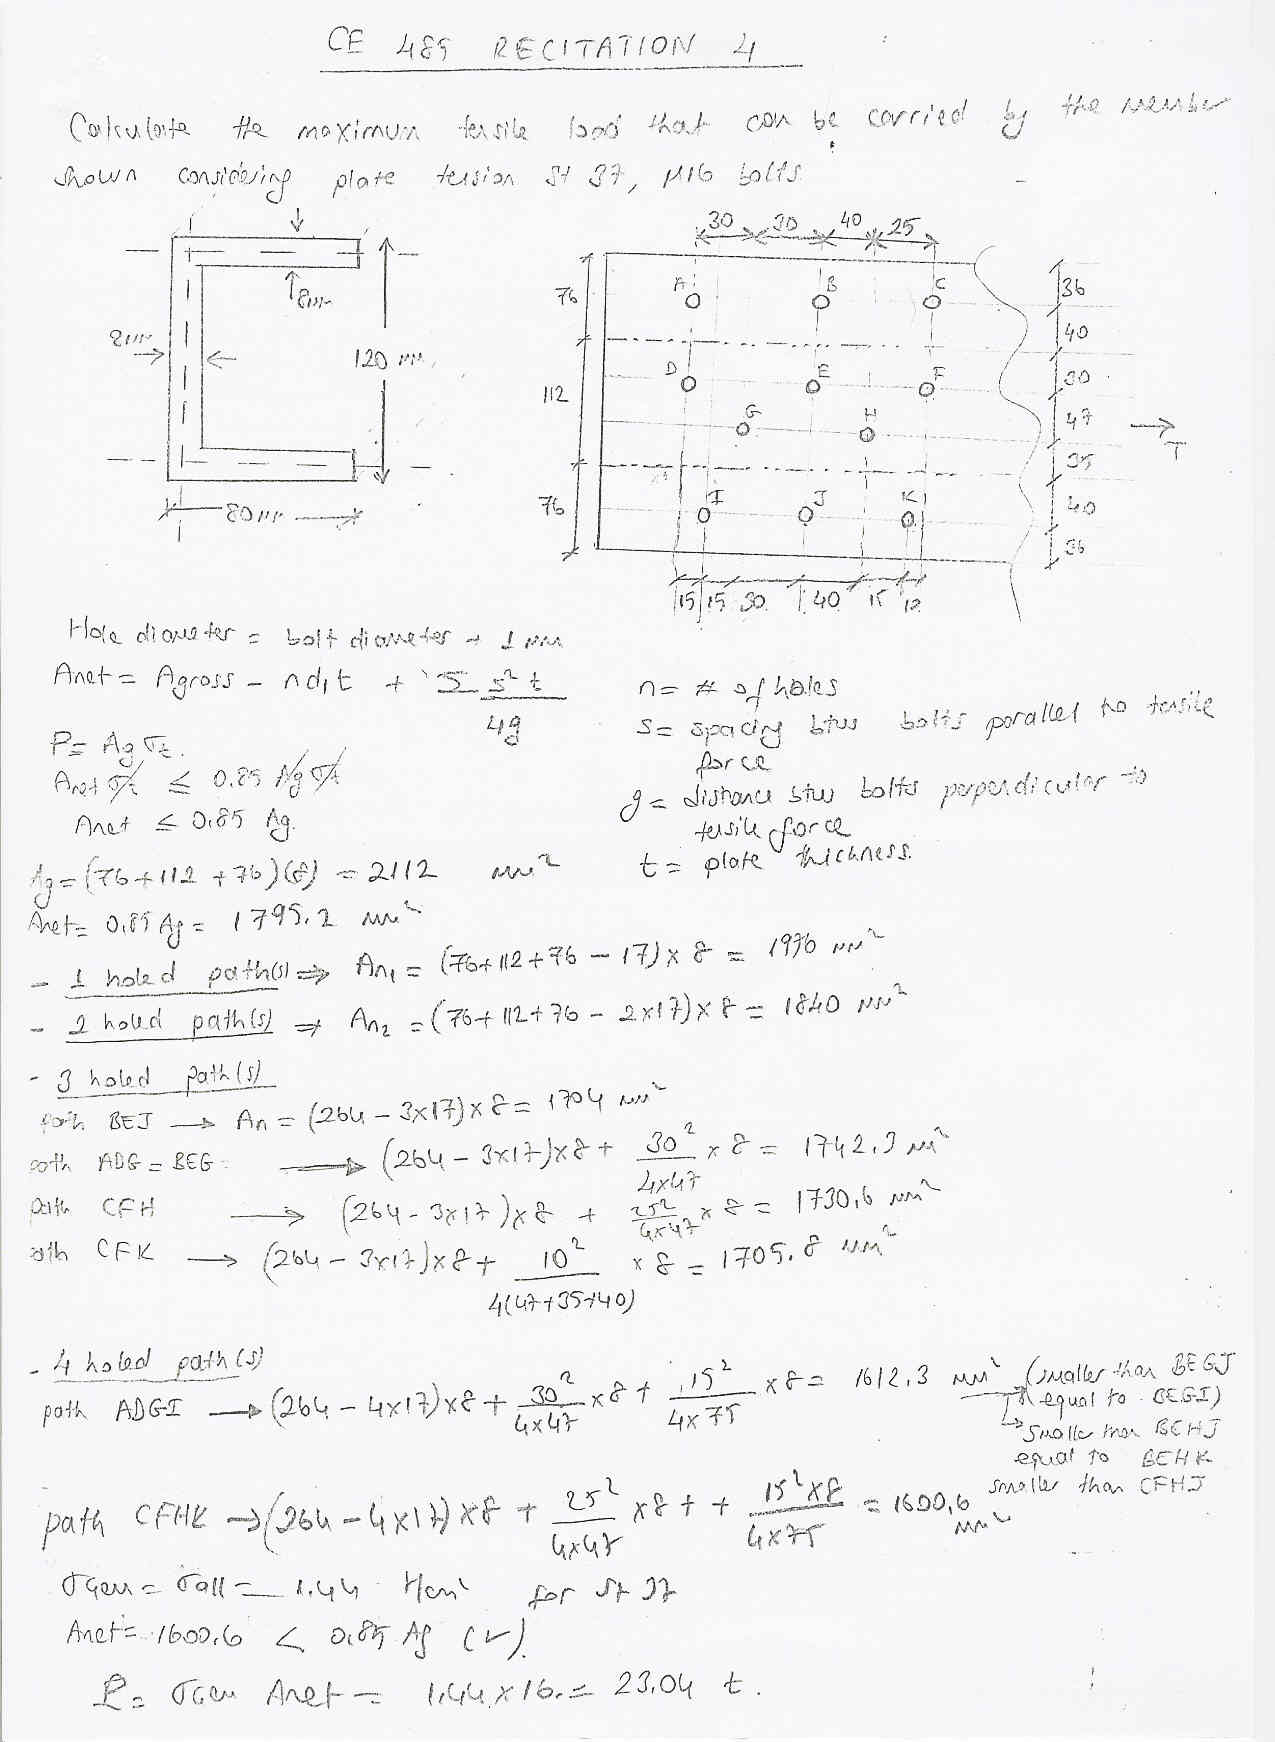 CE 485 RECITATION 4
Calculate the maximum tensile load that can be carried by the member
shown considering plate tension St 37, M16 bolts.
30 30 40 25
76
112
76
A B C
D E F
G H
I J K
36
40
30
47
35
40
36
T
8mm
8mm
120 mm
80mm
15 15 30 40 15 12
Hole diameter = bolt diameter + 1 mm
Anet = Agross - nd₁t + Σ s²t / 4g
n= # of holes
s= spacing btw bolts parallel to tensile
force
g= distance btw bolts perpendicular to
tensile force
t= plate thickness.
P= Ag σt.
Anet σt ≤ 0.85 Ag σt
Anet ≤ 0.85 Ag.
Ag=(76+112+76)(8) = 2112 mm²
Anet= 0.85 Ag= 1795.2 mm²
- 1 holed path(s) ⇒ An₁ = (76+112+76-17)x8 = 1976 mm²
- 2 holed path(s) ⇒ An₂ =(76+112+76-2x17)x8 = 1840 mm²
- 3 holed path(s)
path BEJ → An = (264-3x17)x8= 1704 mm²
path ADG = BEG → (264-3x17)x8+ 30²/4x47 x8= 1742.3 mm²
path CFH → (264-3x17)x8 + 25²/4x47 x8= 1730,6 mm²
path CFK → (264-3x17)x8+ 10²/4(47+35+40) x8= 1705.8 mm²
- 4 holed path(s)
path ADGI → (264-4x17)x8+ 30²/4x47 x8+ 15²/4x75 x8= 1612.3 mm² (smaller than BEGJ
equal to BEGI)
smaller than BEHJ
equal to BEHK
smaller than CFHJ
path CFHK → (264-4x17)x8 + 25²/4x47 x8+ + 15²x8/4x75 = 1600,6
mm²
σGem = σall = 1.44 t/cm² for St 37
Anet= 1600.6 < 0.85 Ag (✓).
P= σGem Anet = 1.44x16.= 23.04 t.